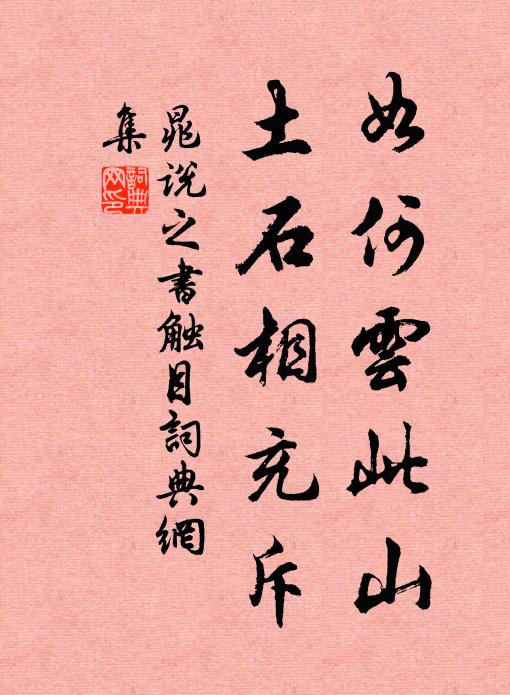 如何雲此山
土石相充斥
晁说之書触目詞典網
集
詞典
网印